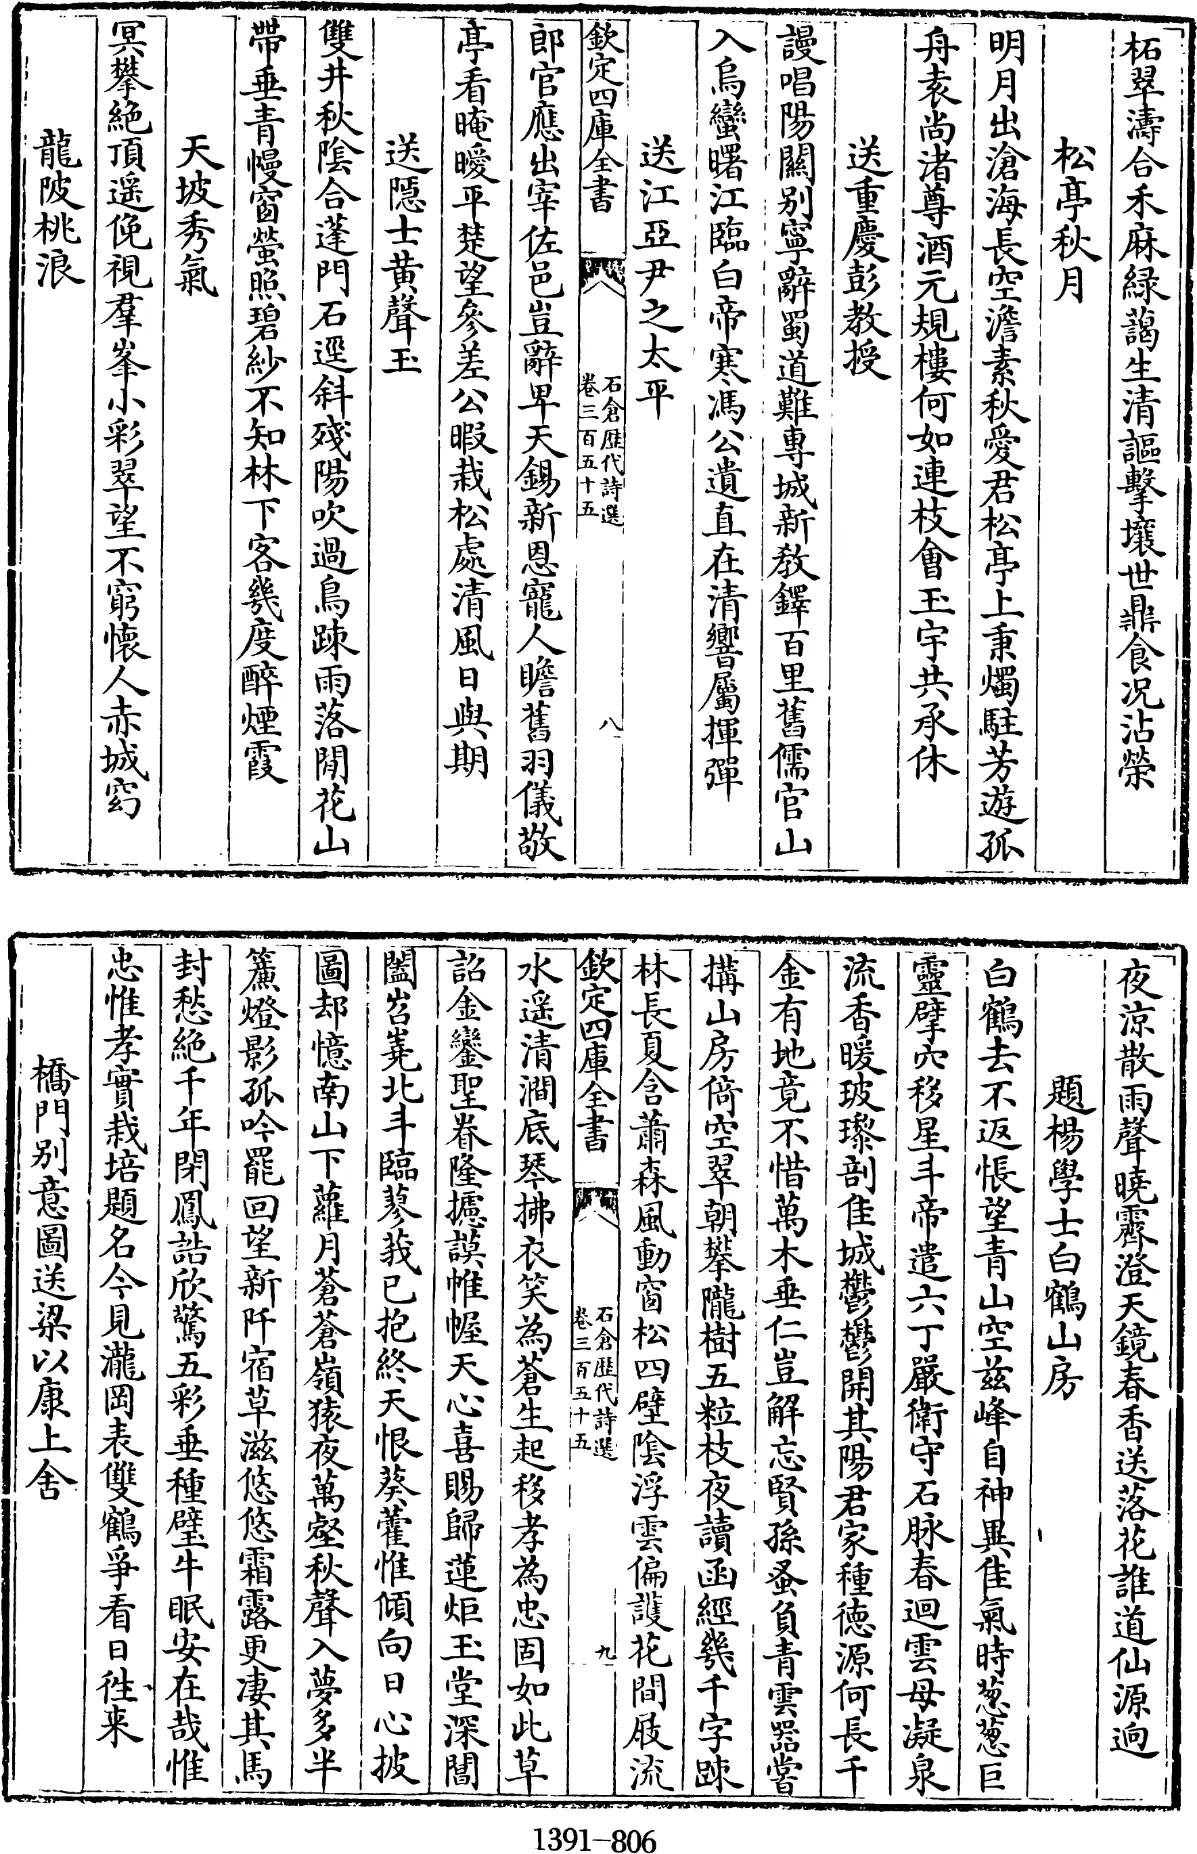 柘翠濤合禾麻緑藹生清謳擊壤世鼎食况沾榮
松亭秋月
明月出滄海長空澹素秋愛君松亭上秉燭駐芳遊孤
舟袁尚渚尊酒元規樓何如連枝會玉宇共承休
送重慶彭教授
謾唱陽關别寧辭蜀道難專城新敎鐸百里舊儒官山
入烏蠻曙江臨白帝寒馮公遺直在清響屬揮彈
送江亞尹之太平
欽定四庫全書
石倉歷代詩選
卷三百五十五
八
郎官應出宰佐邑豈辭卑天錫新恩寵人瞻舊羽儀敬
亭看晻曖平楚望參差公暇栽松處清風日與期
送隱士黄聲玉
雙井秋陰合蓬門石逕斜殘陽吹過鳥踈雨落閒花山
帶垂青幔窗螢照碧紗不知林下客幾度醉煙霞
天坡秀氣
冥攀絶頂遥俛視羣峯小彩翠望不窮懷人赤城窈
龍陂桃浪
夜凉散雨聲曉霽澄天鏡春香送落花誰道仙源逈
題楊學士白鶴山房
白鶴去不返悵望青山空兹峰自神異佳氣時葱葱巨
靈擘穴移星斗帝遣六丁嚴衛守石脉春迴雲母凝泉
流香暖玻瓈剖佳城鬱鬱開其陽君家種德源何長千
金有地竟不惜萬木垂仁豈解忘賢孫蚤負青雲器嘗
搆山房倚空翠朝攀隴樹五粒枝夜讀函經幾千字踈
林長夏含蕭森風動窗松四壁陰浮雲偏護花間屐流
欽定四庫全書
石倉歷代詩選
卷三百五十五
九
水遥清澗底琴拂衣笑為蒼生起移孝為忠固如此草
詔金鑾聖眷隆攄謨帷幄天心喜賜歸蓮炬玉堂深閶
闔岧嶤北斗臨蓼莪已抱終天恨葵藿惟傾向日心披
圖却憶南山下蘿月蒼蒼嶺猿夜萬壑秋聲入夢多半
簾燈影孤吟罷回望新阡宿草滋悠悠霜露更凄其馬
封愁絶千年閉鳳誥欣驚五彩垂種璧牛眠安在哉惟
忠惟孝實栽培題名今見瀧岡表雙鶴爭看日往来
橋門别意圖送梁以康上舍
1391-806